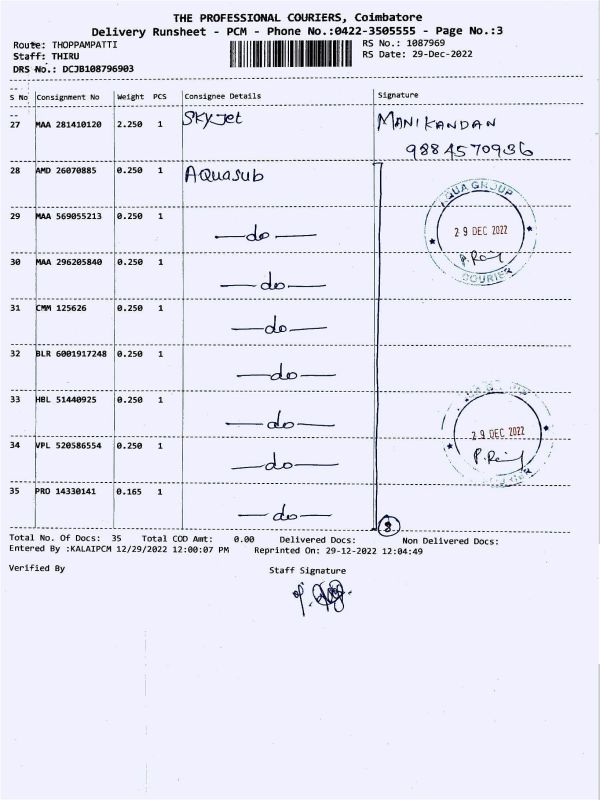 THE PROFESSIONAL COURIERS, Coimbatore
Delivery Runsheet - PCM - Phone No.:0422-3505555 - Page No.:3
Route: THOPPAMPATTI RS No.: 1087969
Staff: THIRU RS Date: 29-Dec-2022
DRS No.: DCJB108796903
S No Consignment No Weight PCS Consignee Details Signature
27 MAA 281410120 2.250 1 SkyJet MANIKANDAN
9884570936
28 AMD 26070885 0.250 1 AQuasub
AQUA GROUP
29 MAA 569055213 0.250 1 —do—
29 DEC 2022
P.Raj
COURIER
30 MAA 296205840 0.250 1 —do—
31 CMM 125626 0.250 1 —do—
32 BLR 6001917248 0.250 1 —do—
33 HBL 51440925 0.250 1 —do—
29 DEC 2022
34 VPL 520586554 0.250 1 —do—
35 PRO 14330141 0.165 1 —do—
8
Total No. Of Docs: 35 Total COD Amt: 0.00 Delivered Docs: Non Delivered Docs:
Entered By :KALAIPCM 12/29/2022 12:00:07 PM Reprinted On: 29-12-2022 12:04:49
Verified By Staff Signature